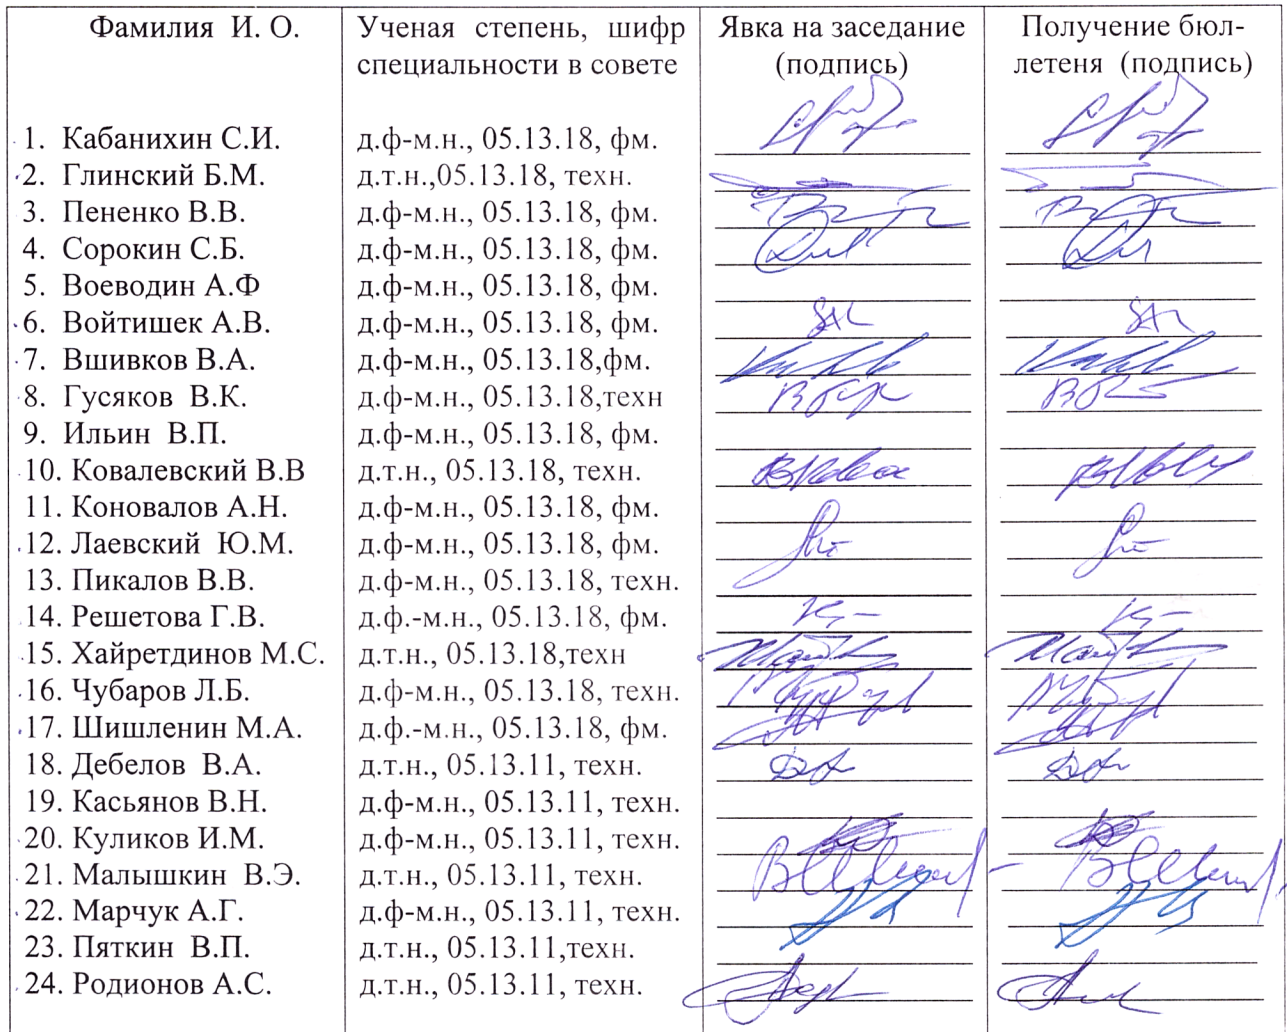 Фамилия И. О. Ученая степень, шифр Явка на заседание Получение бюл-
специальности в совете (подпись) летеня (подпись)
1. Кабанихин С.И. д.ф-м.н., 05.13.18, фм.
2. Глинский Б.М. д.т.н.,05.13.18, техн.
3. Пененко В.В. д.ф-м.н., 05.13.18, фм.
4. Сорокин С.Б. д.ф-м.н., 05.13.18, фм.
5. Воеводин А.Ф д.ф-м.н., 05.13.18, фм.
6. Войтишек А.В. д.ф-м.н., 05.13.18, фм.
7. Вшивков В.А. д.ф-м.н., 05.13.18,фм.
8. Гусяков В.К. д.ф-м.н., 05.13.18,техн
9. Ильин В.П. д.ф-м.н., 05.13.18, фм.
10. Ковалевский В.В д.т.н., 05.13.18, техн.
11. Коновалов А.Н. д.ф-м.н., 05.13.18, фм.
12. Лаевский Ю.М. д.ф-м.н., 05.13.18, фм.
13. Пикалов В.В. д.ф-м.н., 05.13.18, техн.
14. Решетова Г.В. д.ф.-м.н., 05.13.18, фм.
15. Хайретдинов М.С. д.т.н., 05.13.18,техн
16. Чубаров Л.Б. д.ф-м.н., 05.13.18, техн.
17. Шишленин М.А. д.ф.-м.н., 05.13.18, фм.
18. Дебелов В.А. д.т.н., 05.13.11, техн.
19. Касьянов В.Н. д.ф-м.н., 05.13.11, техн.
20. Куликов И.М. д.ф-м.н., 05.13.11, техн.
21. Малышкин В.Э. д.т.н., 05.13.11, техн.
22. Марчук А.Г. д.ф-м.н., 05.13.11, техн.
23. Пяткин В.П. д.т.н., 05.13.11,техн.
24. Родионов А.С. д.т.н., 05.13.11, техн.